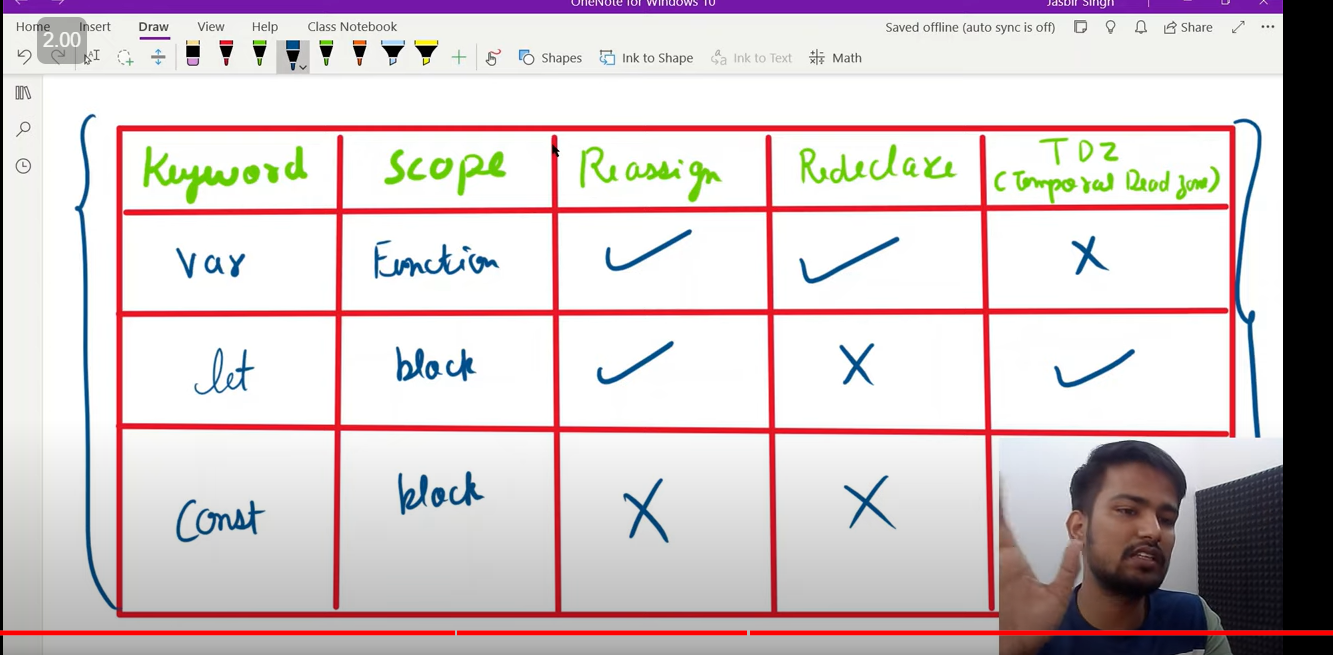 OneNote for Windows 10
Jasbir Singh
Home Insert Draw View Help Class Notebook
Saved offline (auto sync is off)
Share
2.00
Shapes
Ink to Shape
Ink to Text
Math
Keyword Scope Reassign Redeclare TDZ
(Temporal Dead Zone)
var Function ✓ ✓ X
let block ✓ X ✓
Const block X X